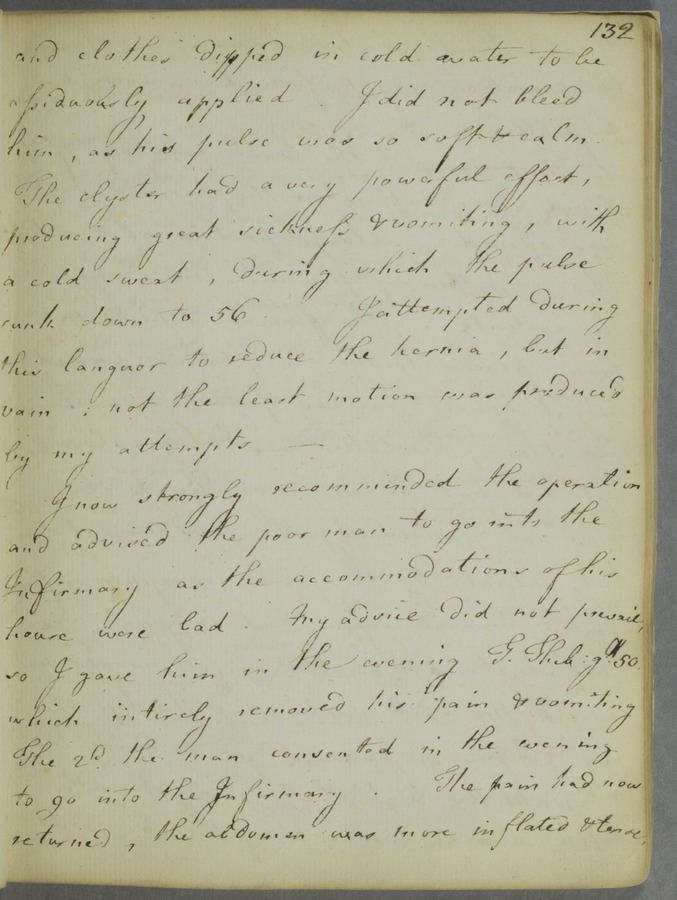 132
and clothes dipped in cold water to be
assiduously applied. I did not bleed
him, as his pulse was so soft & calm.
The clyster had a very powerful effect,
producing great sickness & vomiting, with
a cold sweat, during which the pulse
sunk down to 56 I attempted during
this languor to reduce the hernia, but in
vain; not the least motion was produced
by my attempts —
I now strongly recommended the operation
and advised the poor man to go into the
Infirmary as the accommodations of his
house were bad. My advice did not prevail,
so I gave him in the evening G. Theb: gtt 50.
which intirely removed his pain & vomiting
The 2d. the man consented in the evening
to go into the Infirmary. The pain had now
returned, the abdomen was more inflated & tense,